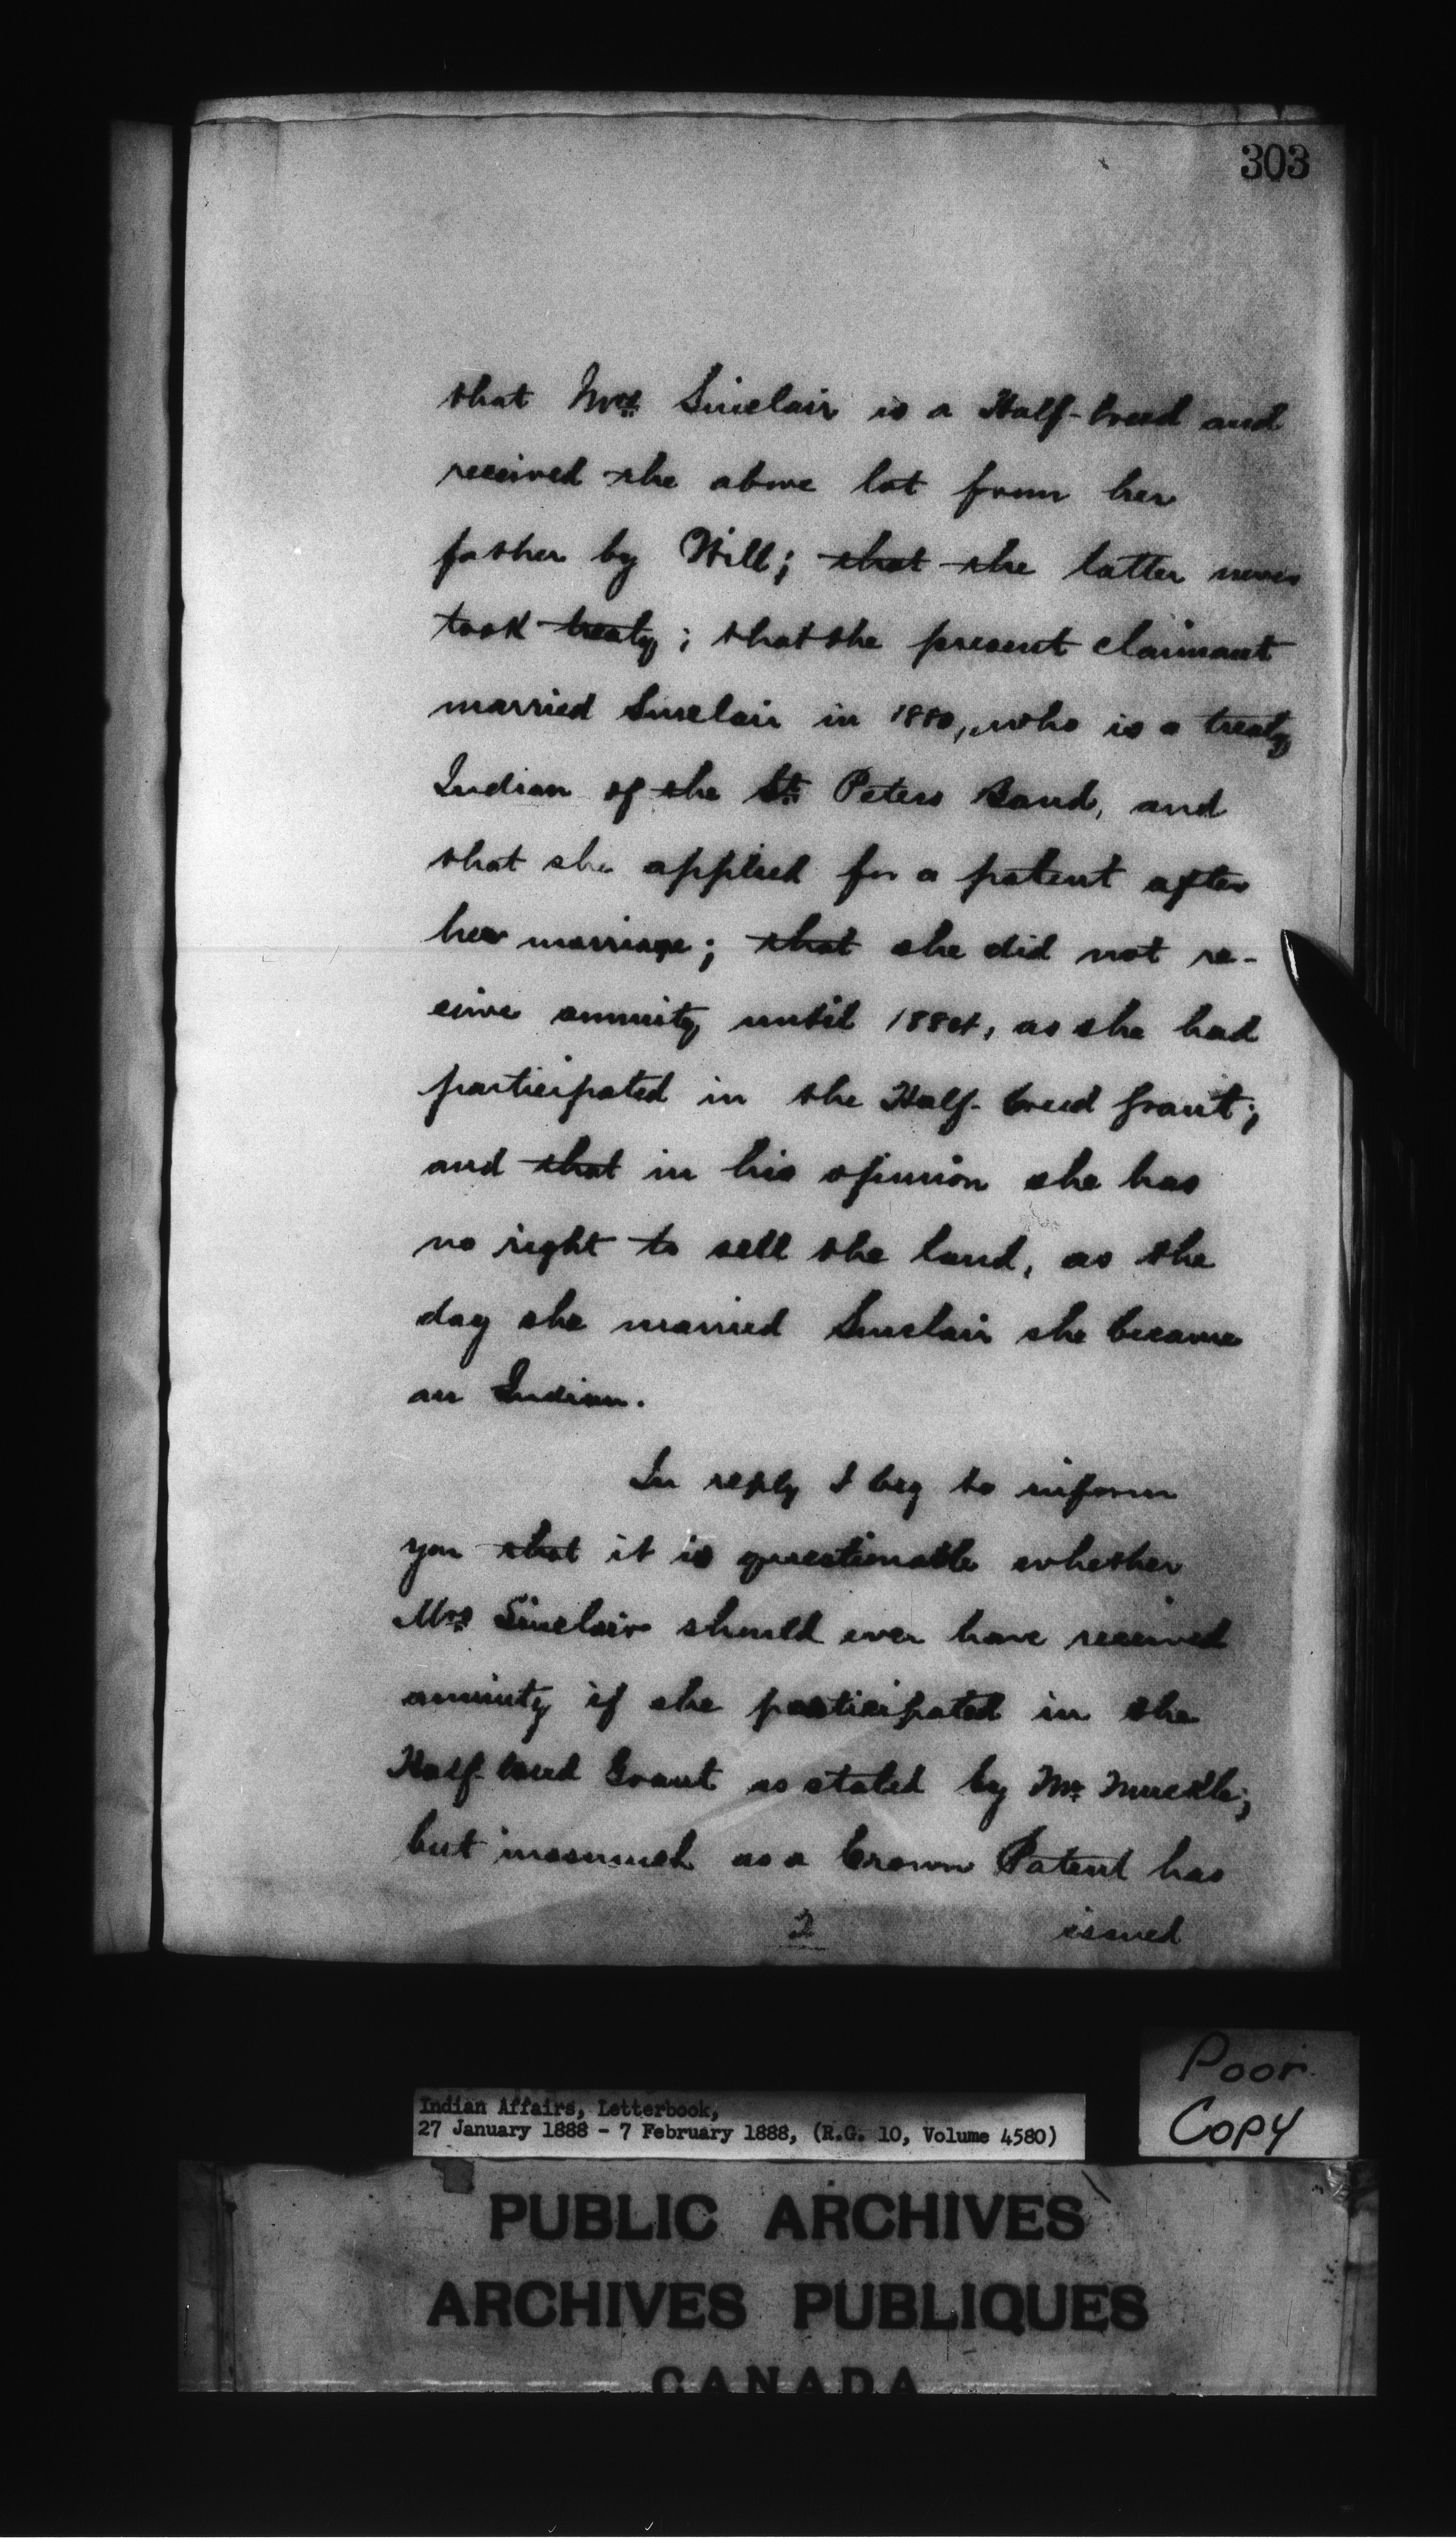 303
that Mrs. Sinclair is a Half-breed and
received the above lot from her
father by Will; that the latter never
took treaty; that the present claimant
married Sinclair in 1880, who is a treaty
Indian of the St. Peters Band, and
that she applied for a patent after
her marriage; that she did not re-
ceive annuity until 1884, as she had
participated in the Half-breed Grant;
and that in his opinion she has
no right to sell the land, as the
day she married Sinclair she became
an Indian.
In reply I beg to inform
you that it is questionable whether
Mrs. Sinclair should ever have received
annuity if she participated in the
Half-breed Grant as stated by Mr. Muckle;
but inasmuch as a Crown Patent has
2 issued
Poor
Copy
Indian Affairs, Letterbook,
27 January 1888 - 7 February 1888, (R.G. 10, Volume 4580)
PUBLIC ARCHIVES
ARCHIVES PUBLIQUES
CANADA